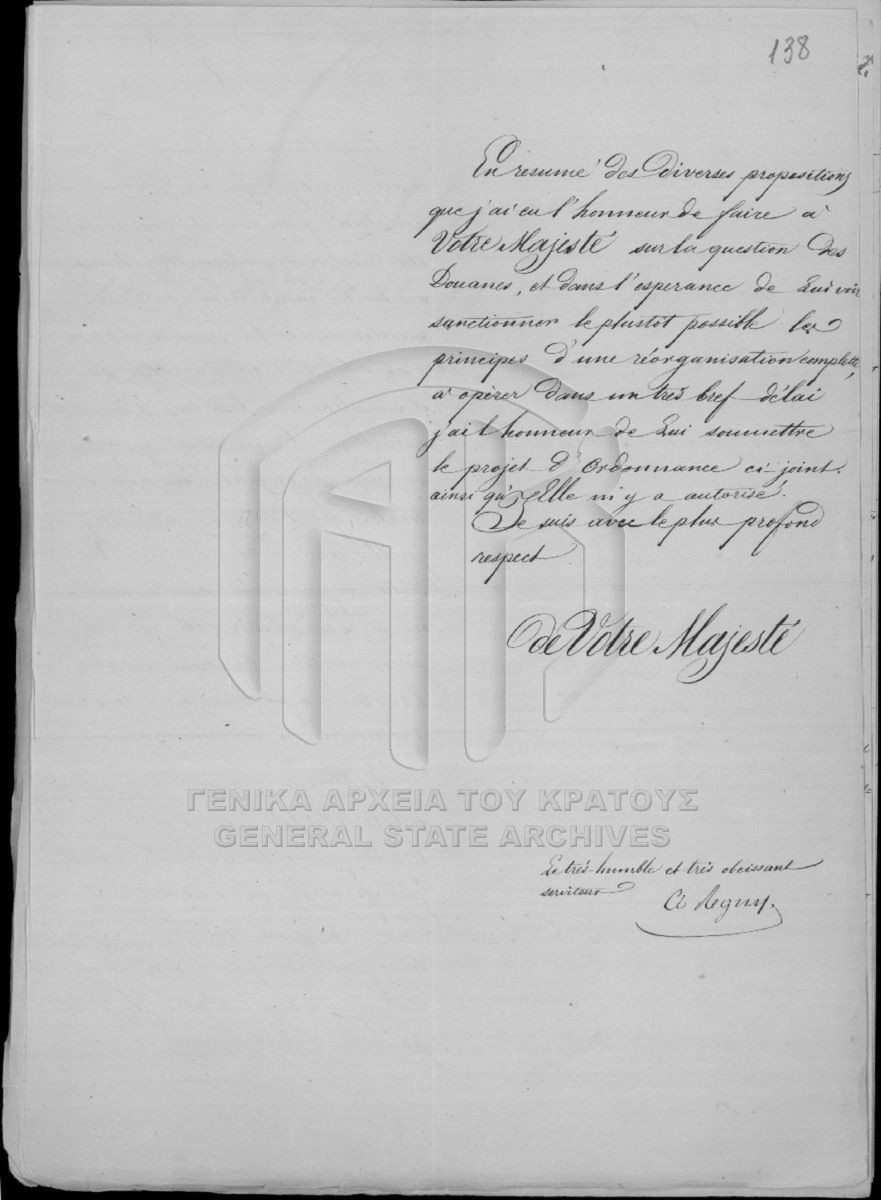 138
En resumé des diverses propositions
que j'ai eu l'honneur de faire à
Votre Majesté sur la question des
Douanes, et dans l'esperance de Lui voir
sanctionner le plustot possible les
principes d'une réorganisation complette,
à opérer dans un très bref délai
j'ai l'honneur de Lui soumettre
le projet d'Ordonnance ci-joint.
ainsi qu'Elle m'y a autorisé.
Je suis avec le plus profond
respect
de Votre Majesté
ΓΕΝΙΚΑ ΑΡΧΕΙΑ ΤΟΥ ΚΡΑΤΟΥΣ
GENERAL STATE ARCHIVES
Le très-humble et très obeissant
serviteur
Regny.